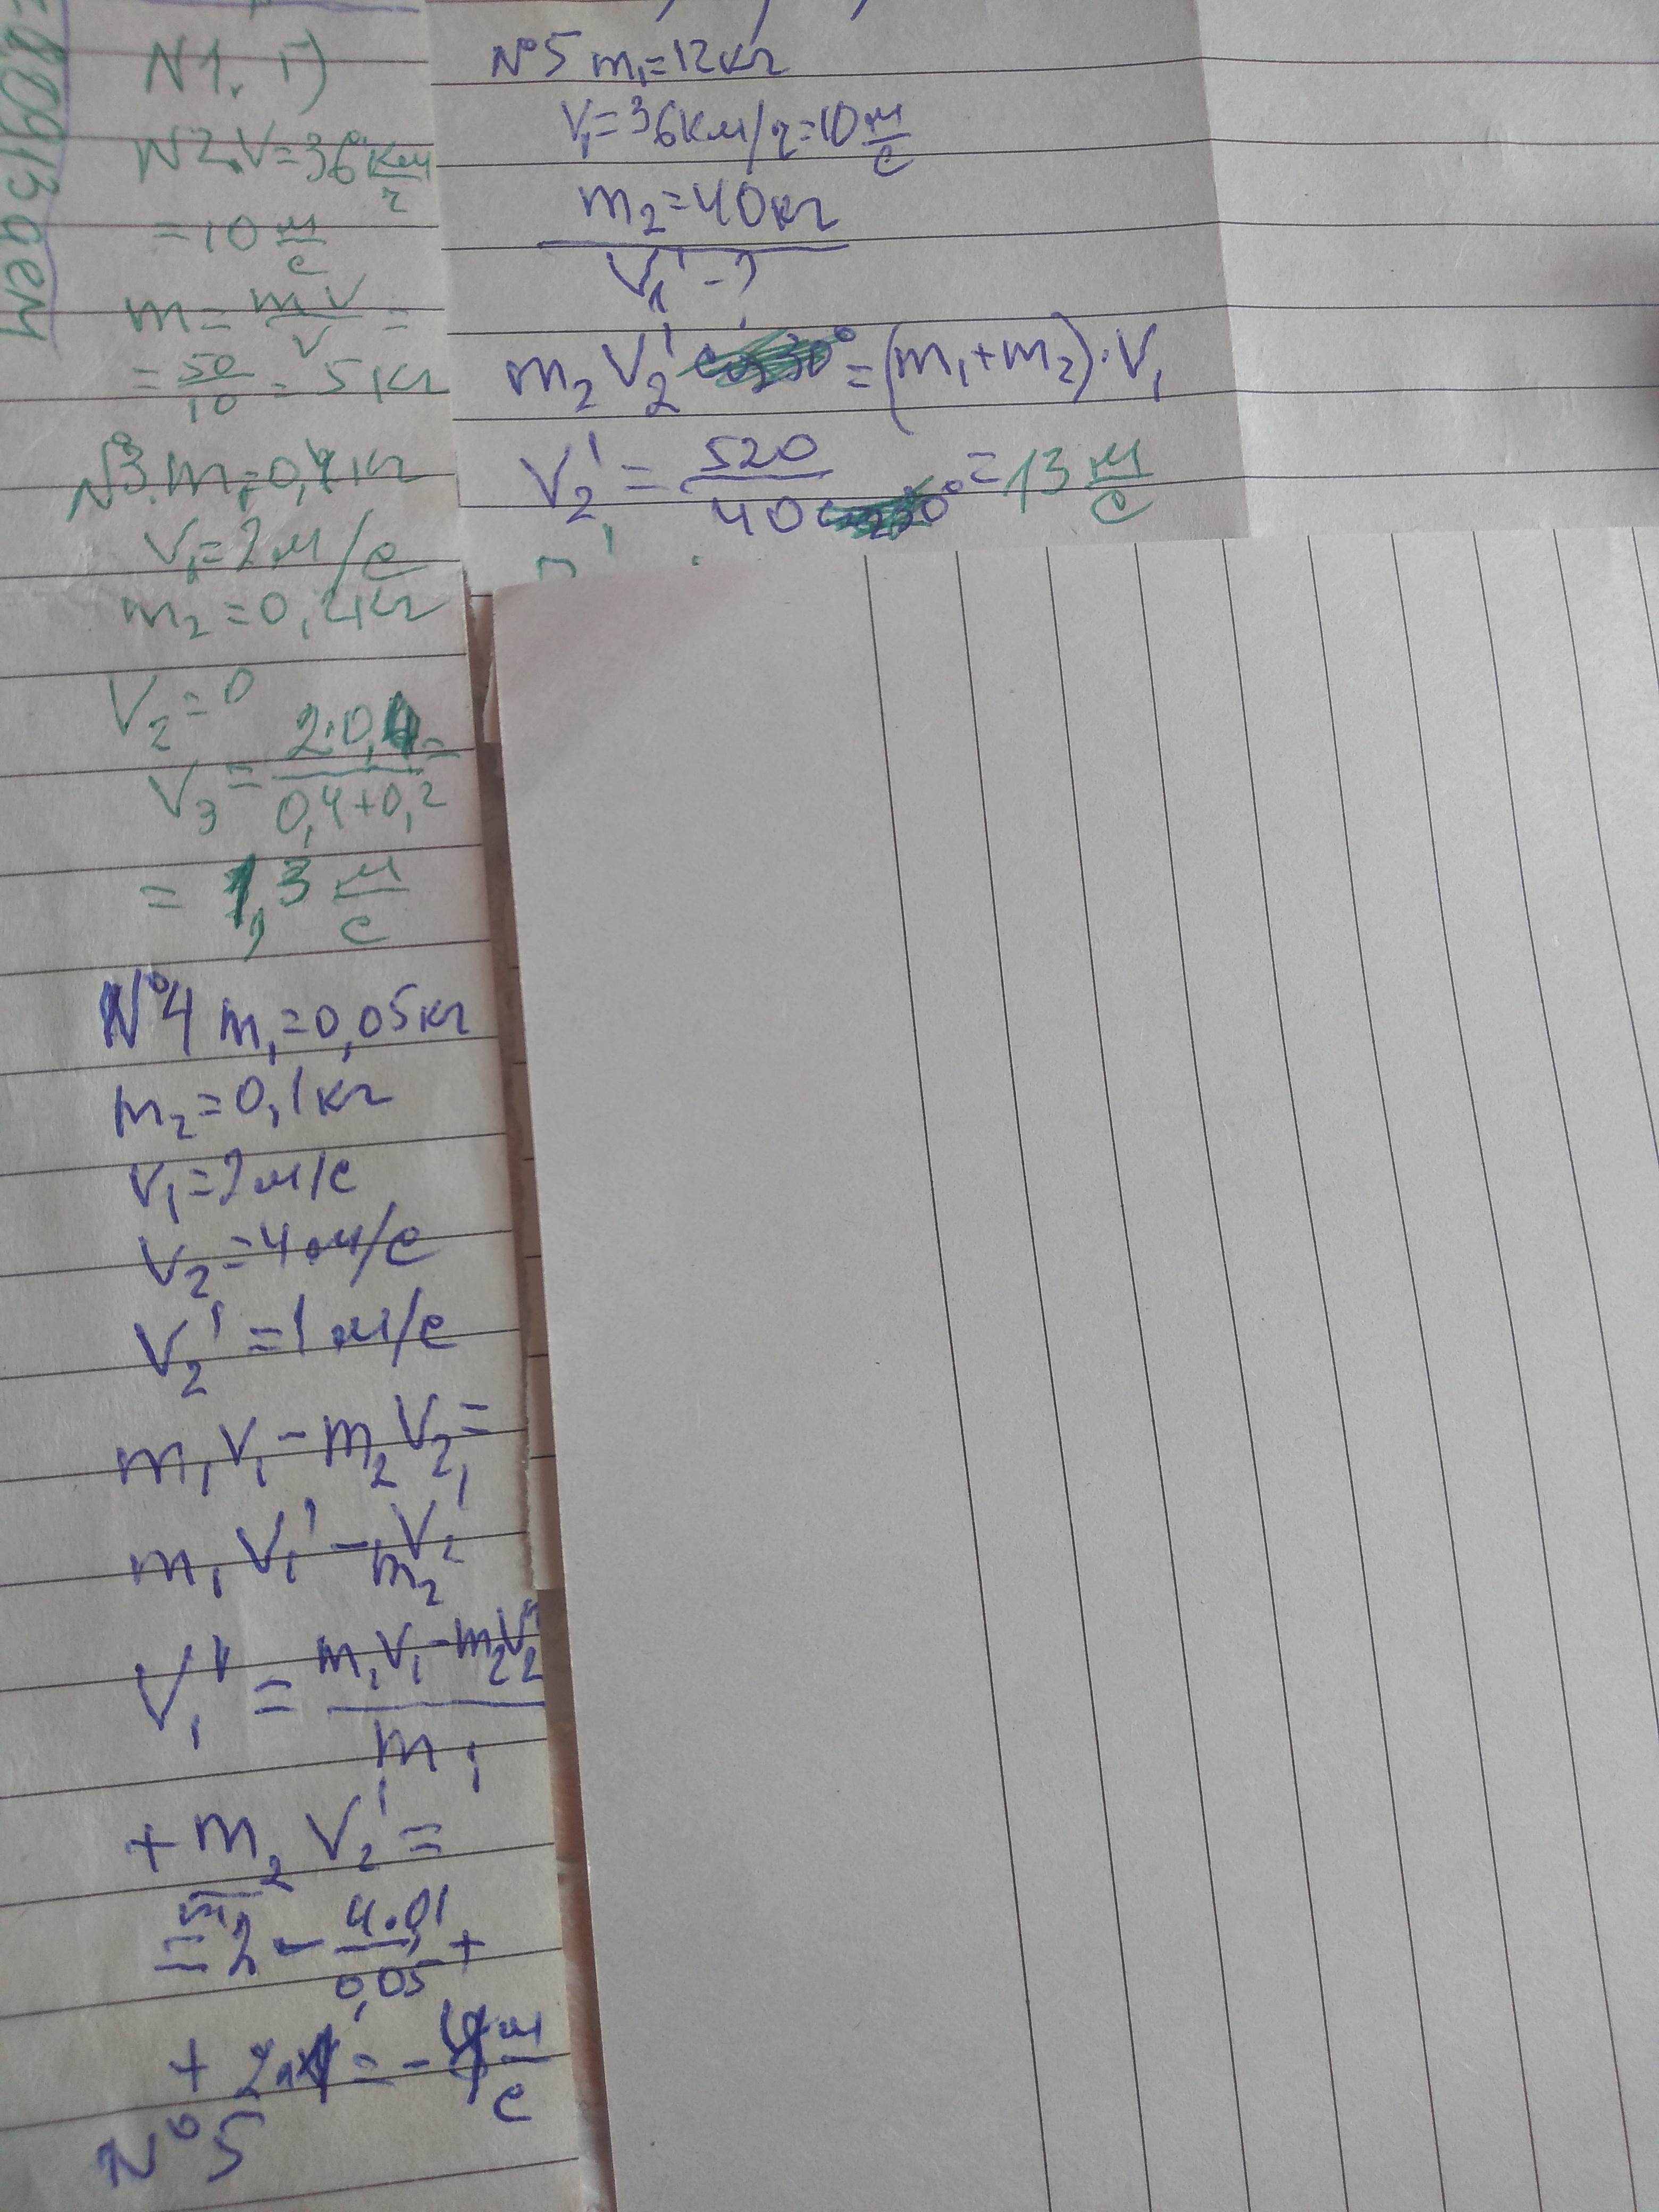 N1. Г)
N2. V=36 км/ч
=10 м/с
m = mV/V =
= 50/10 = 5 кг
N3. m₁=0,4 кг
V₁=2 м/с
m₂=0,2 кг
V₂=0
V₃ = 2·0,4/0,4+0,2
= 1,3 м/с
№4 m₁=0,05 кг
m₂=0,1 кг
V₁=2 м/с
V₂=4 м/с
V₂'=1 м/с
m₁V₁-m₂V₂=
m₁V₁'-m₂V₂'
V₁' = m₁V₁-m₂V₂/m₁
+ m₂V₂'/m₁ =
=2 - 4·0,1/0,05 +
+ 2·1 = -4 м/с
№5
№5 m₁=12 кг
V₁=36 км/ч=10 м/с
m₂=40 кг
V₁'-?
m₂V₂' = (m₁+m₂)·V₁
V₂' = 520/40 = 13 м/с